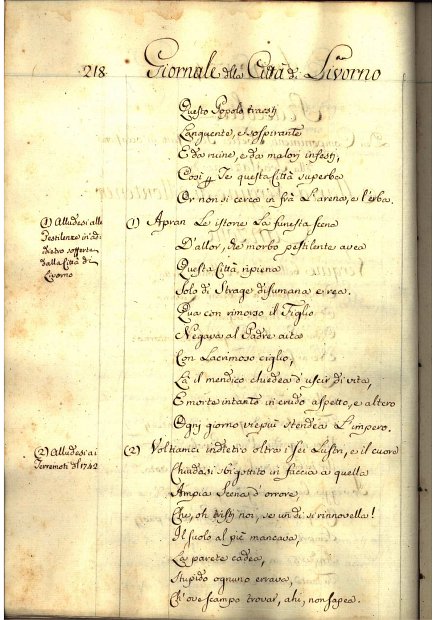 218. Giornale della Città di Livorno
Questo Popolo traesti
Languente, e sospirante
E da ruine, e da malori infesti,
Così p Te questa Città superba
Or non si cerca in frà L'arena, e l'erba.
(1) Alludesi alle
Pestilenze in ad
dietro sofferte
dalla Città di
Livorno
(1) Apran Le istorie La funesta scena
D'allor, che morbo pestilente avea
Questa Città ripiena
Solo di Strage disumana e rea.
Qua con rimorso il Figlio
Negava al Padre aita
Con Lacrimoso ciglio,
Là il mendico chiedea d'uscir di vita,
E morte intanto in crudo aspetto, e altero
Ogni giorno viepiù stendea L'impero.
(2) Alludesi ai
Terremoti del 1742
(2) Voltiamci indietro oltra i sei Lustri, e il cuore
Chiudasi sbigottito in faccia a quella
Ampia Scena d'orrore,
Che, oh tristi noi, se un di si rinnovella!
Il suolo al piè mancava,
La parete cadea,
Stupido ognuno errava,
Ch'ove scampo trovar, ahi, non sapea.